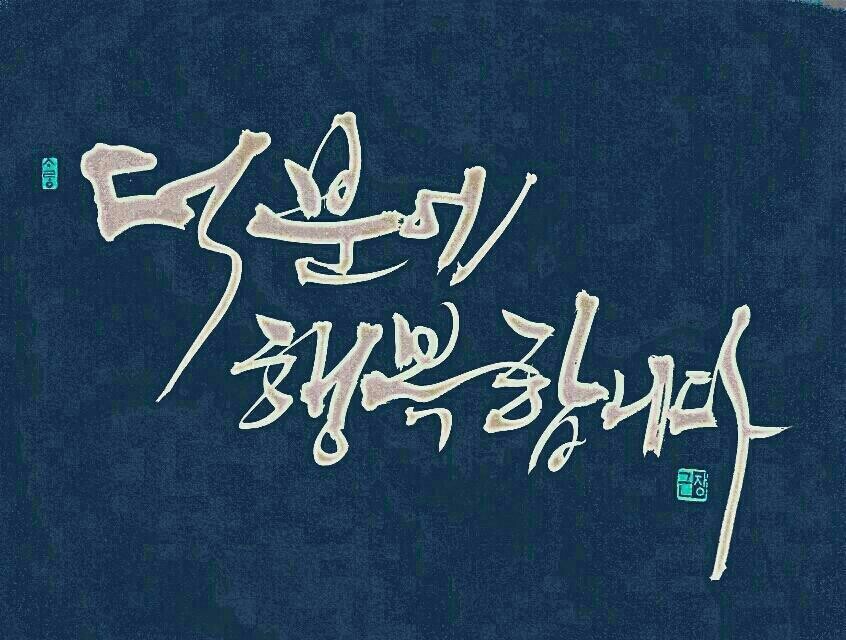 덕분에
행복합니다